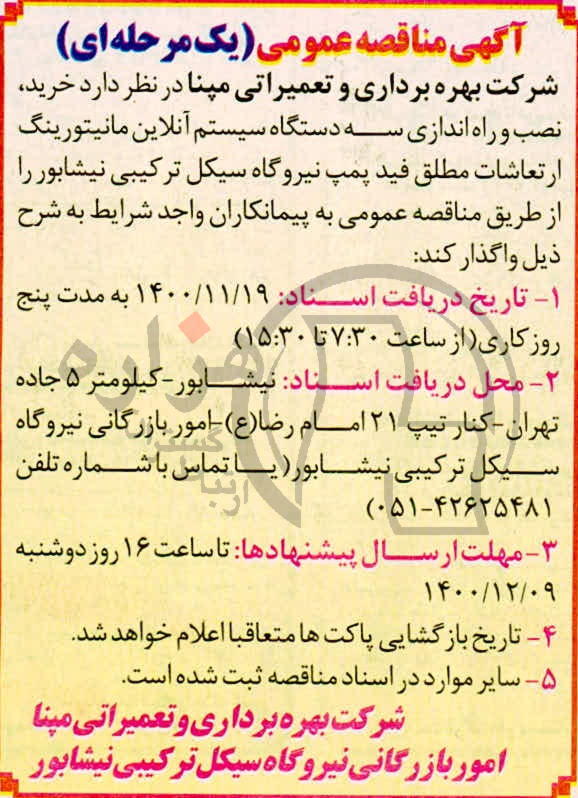 آگهی مناقصه عمومی (یک مرحله ای)
شرکت بهره برداری و تعمیراتی مپنا در نظر دارد خرید،
نصب و راه اندازی سه دستگاه سیستم آنلاین مانیتورینگ
ارتعاشات مطلق فید پمپ نیروگاه سیکل ترکیبی نیشابور را
از طریق مناقصه عمومی به پیمانکاران واجد شرایط به شرح
ذیل واگذار کند:
۱- تاریخ دریافت اسناد: ۱۴۰۰/۱۱/۱۹ به مدت پنج
روز کاری(از ساعت ۷:۳۰ تا ۱۵:۳۰)
۲- محل دریافت اسناد: نیشابور-کیلومتر ۵ جاده
تهران-کنار تیپ ۲۱ امام رضا(ع)-امور بازرگانی نیروگاه
سیکل ترکیبی نیشابور( یا تماس با شماره تلفن
۰۵۱-۴۲۶۲۵۴۸۱)
۳- مهلت ارسال پیشنهادها: تا ساعت ۱۶ روز دوشنبه
۱۴۰۰/۱۲/۰۹
۴- تاریخ بازگشایی پاکت ها متعاقبا اعلام خواهد شد.
۵- سایر موارد در اسناد مناقصه ثبت شده است.
شرکت بهره برداری و تعمیراتی مپنا
امور بازرگانی نیروگاه سیکل ترکیبی نیشابور
هزاره